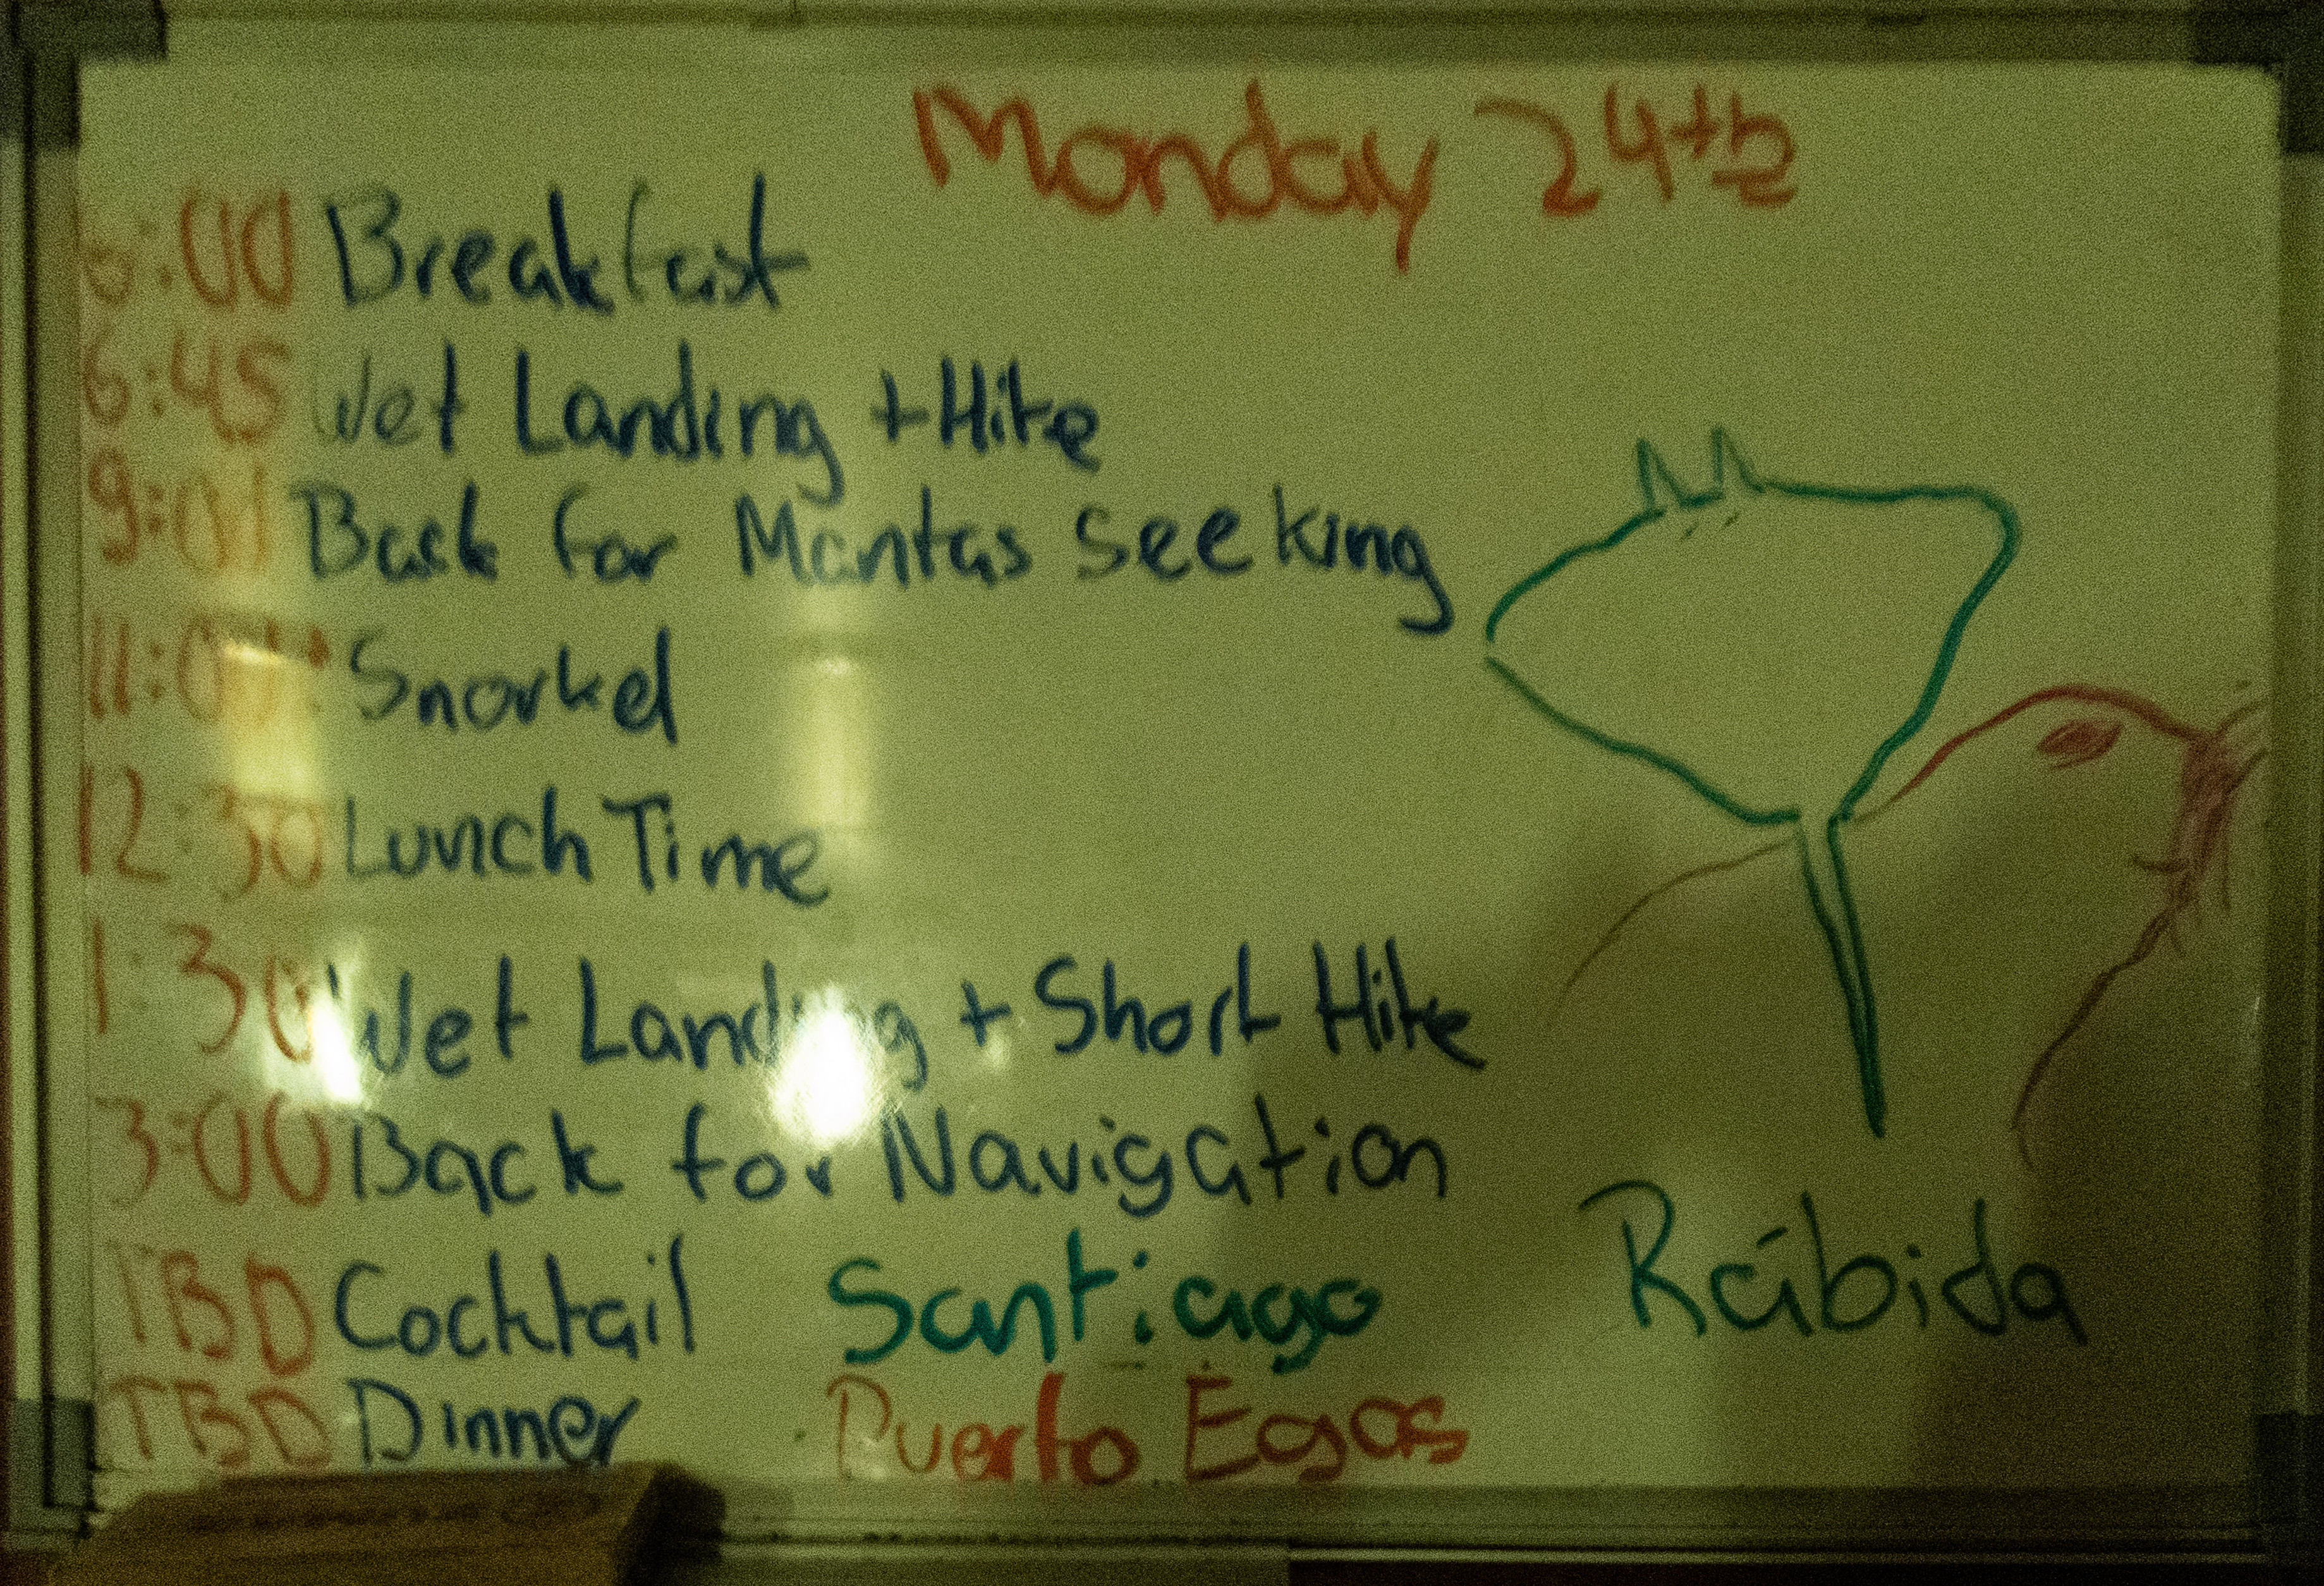 Monday 24th
6:00 Breakfast
6:45 Wet Landing + Hike
9:00 Back for Mantas seeking
11:00 Snorkel
12:30 Lunch Time
1:30 Wet Landing + Short Hike
3:00 Back for Navigation
TBD Cocktail Santiago Rábida
TBD Dinner Puerto Egas